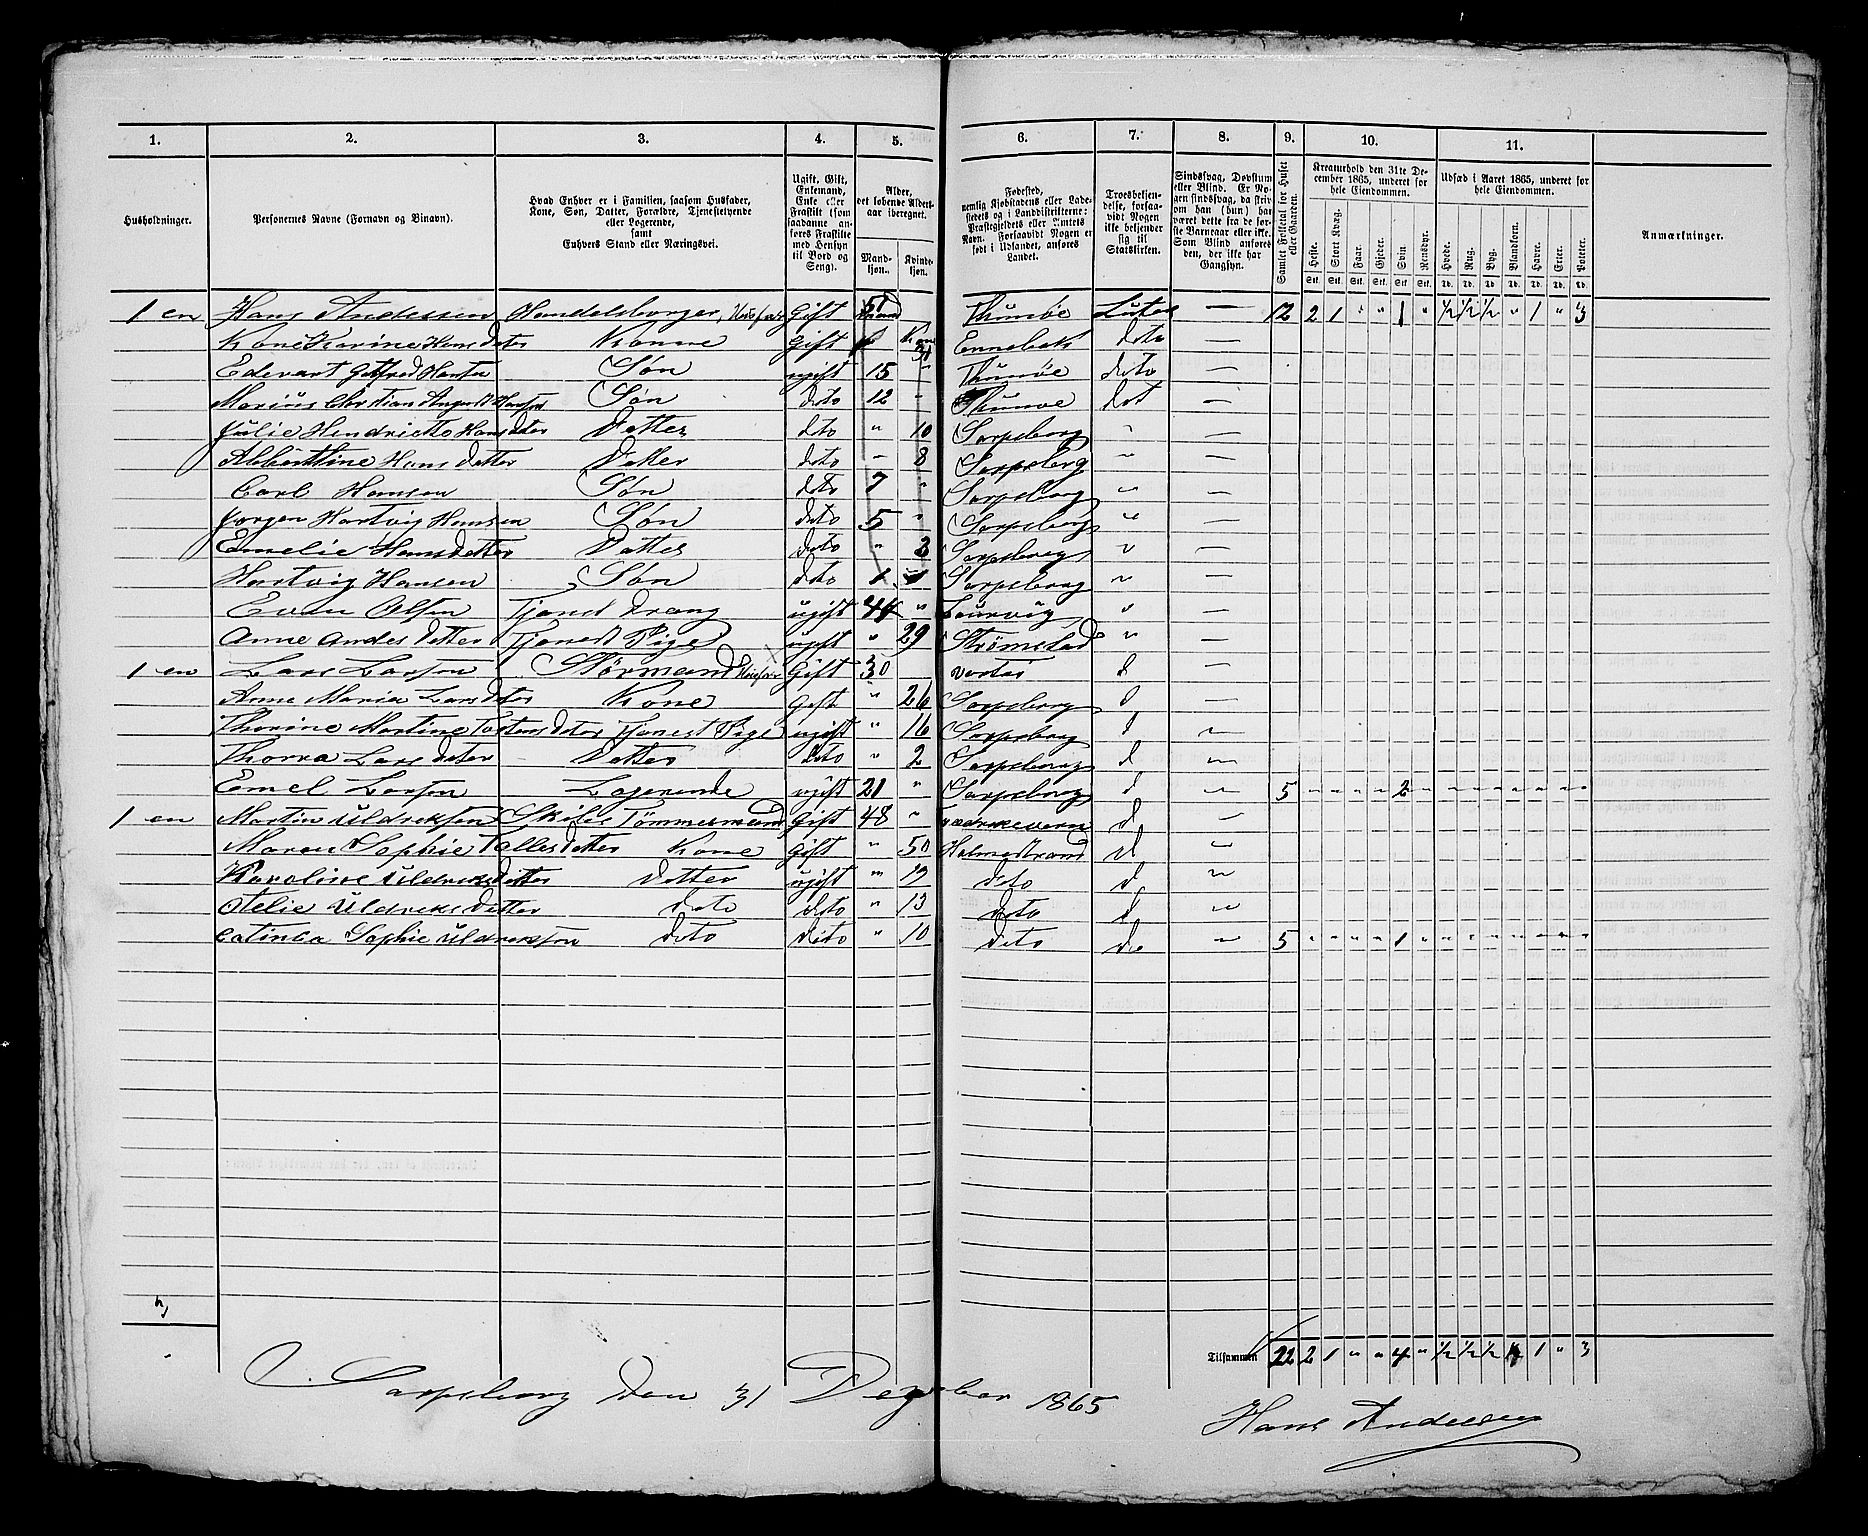 1. 2. 3. 4. 5. 6. 7. 8. 9. 10. 11.
Husholdninger.
Personernes Navne (Fornavn og Binavn).
Hvad Enhver er i Familien, saasom Husfader, Kone, Søn, Datter, Forældre, Tjenestetyende eller Logerende, samt Enhvers Stand eller Næringsvei.
Ugift, Gift, Enkemand, Enke eller Fraskilt (som saadanne anføres Fraskilte med Hensyn til Bord og Seng).
Alder, det løbende Aldersaar iberegnet.
Mandkjøn. Kvindekjøn.
Fødested, nemlig Kjøbstadens eller Ladestedets og i Landdistrikterne: Præstegjeldets eller Amtets Navn. Forsaavidt Nogen er født i Udlandet, anføres Landet.
Troesbekjendelse, forsaavidt Nogen ikke bekjender sig til Statskirken.
Sindssvag, Døvstum eller Blind. Er Nogen sindssvag, da skriv om han (hun) har været dette fra de første Barneaar eller ikke. Som Blind anføres den, der ikke har Gangsyn.
Samlet Folketal for Huset eller Gaarden.
Kreaturhold den 31te December 1865, underet for hele Eiendommen.
Heste. Stort Kvæg. Faar. Gjeder. Svin. Rensdyr.
Stk. Stk. Stk. Stk. Stk. Stk.
Udsæd i Aaret 1865, underet for hele Eiendommen.
Hvede. Rug. Byg. Blandkorn. Havre. Erter. Poteter.
Td. Td. Td. Td. Td. Td. Td.
Anmærkninger.
1 en Hans Andersen Handelsborger, Husfader Gift 51 Thunøe Luter — 12 2 1 " " 1 " 1/2 1/2 1/2 " 1 " 3
Kone Karine Hansdeter Konne Gift Kone 31 Ennebak deto —
Edevart Gotfred Hansen Søn ugift 15 " Thunøe deto —
Marius Christian August Hansen Søn deto 12 " Thunøe det —
Julie Hendriette Hansdeter Datter deto " 10 Sarpsborg " —
Albertine Hans detter Datter deto " 8 Sarpsborg " —
Carl Hansen Søn deto 7 " Sarpsborg " —
Jørgen Hartvig Hansen Søn deto 5 " Sarpsborg " —
Emelie Hansdetter Datter deto " 3 Sarpsborg " —
Hartvig Hansen Søn deto 1 Sarpsborg " —
Even Olsen Tjenst Dreng ugift 44 " Laurvig " —
Anne Andesdetter Tjenest Pige ugift " 29 Strømstad " —
1 en Lars Larsen Størmand Husfader Gift 30 d —
Anne Maria Larsdeter Kone Gift " 26 Sarpsborg d —
Thorine Martine Tostensdeter Tjenest Pige ugift " 16 Sarpsborg d —
Thorva Larsdeter Datter deto " 2 Sarpsborg d —
Emel Larsen Logerende ugift 21 " Sarpsborg d — 5 " " " " 2 " " " " " " " "
1 en Martin Uldreksen Skibs Tømmermand Gift 48 " d —
Maren Sophie Tallesdetter Kone Gift " 50 Holmestrand d —
Karoline Uldreksdetter Detter ugift " 19 deto d —
Otelie Uldreksdetter deto deto " 13 deto d —
Catinca Sophie Uldreksen deto deto " 10 deto de — 5 " " " " 1 " " " " " " " "
3
Tilsammen 22 2 1 " " 4 " 1/2 1/2 1/2 1 " 3
Sarpsborg den 31 Dezember 1865
Hans Andersen